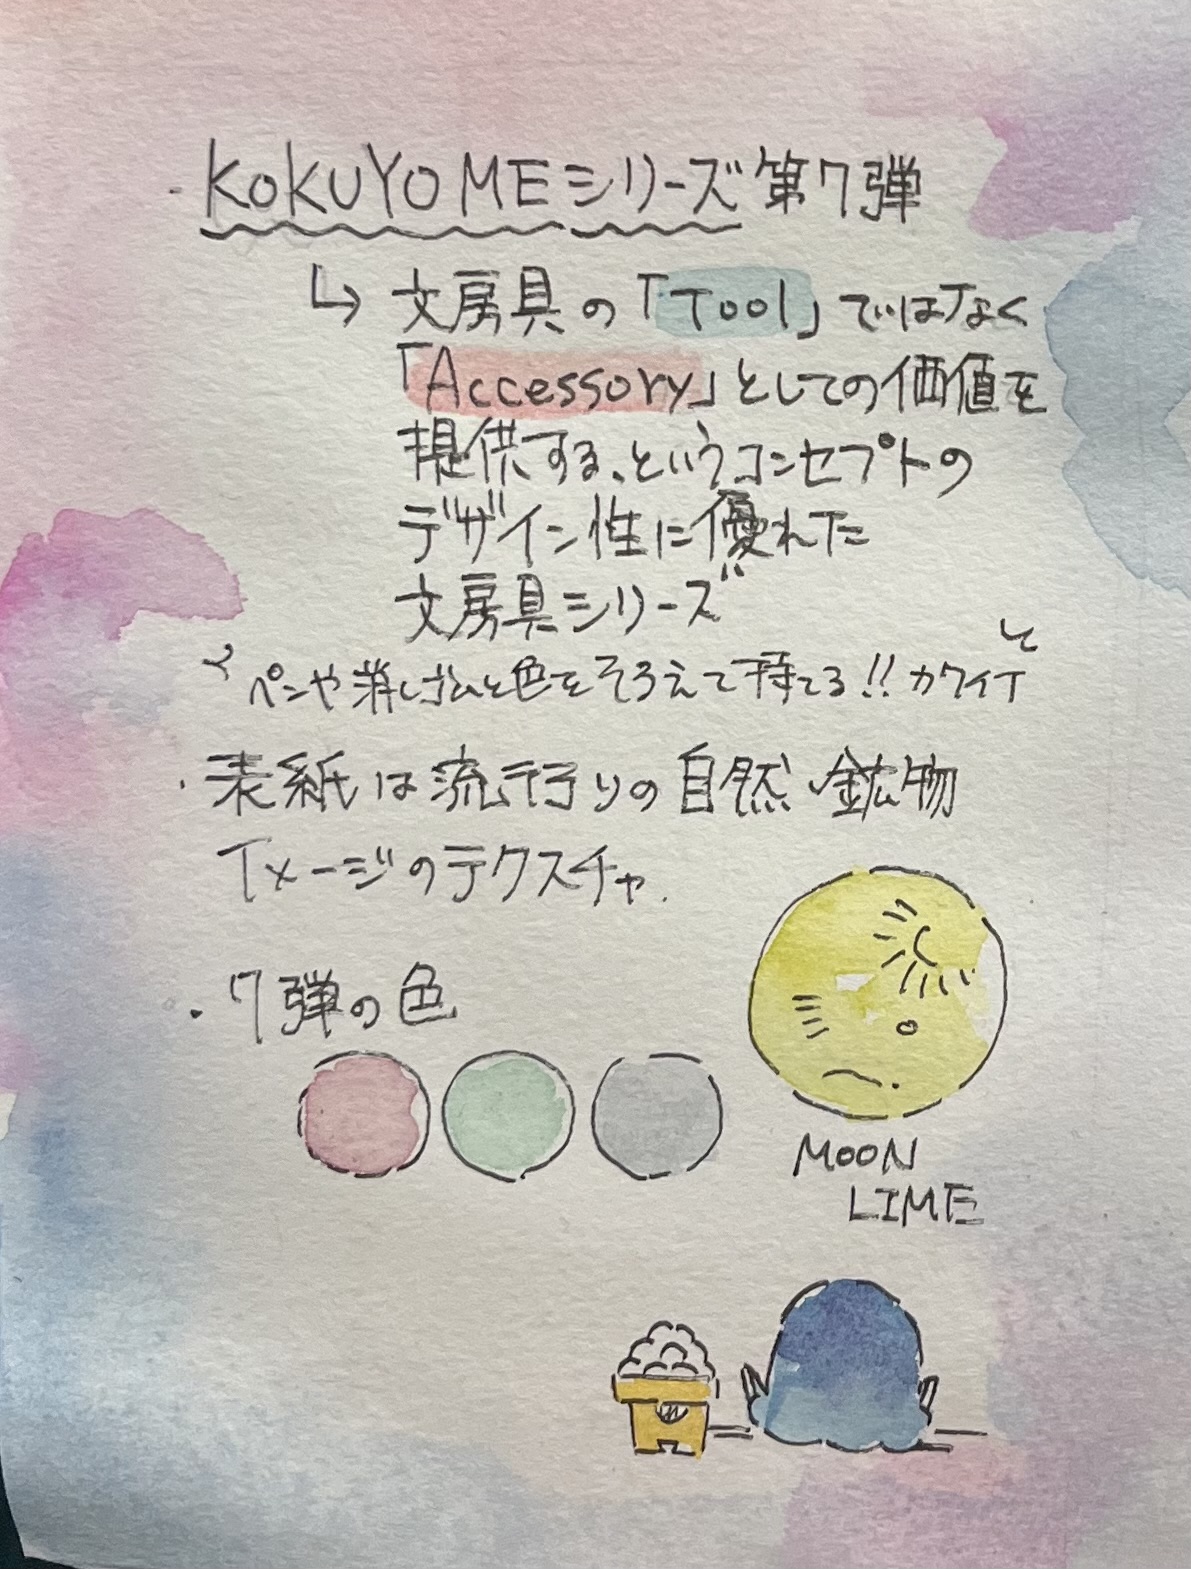 ・KOKUYO MEシリーズ第7弾
↳ 文房具の「Tool」ではなく
「Accessory」としての価値を
提供する、というコンセプトの
デザイン性に優れた
文房具シリーズ
ペンや消しゴムと色をそろえて持てる!! カワイイ
・表紙は流行りの自然・鉱物
イメージのテクスチャ.
・7弾の色
MOON
LIME